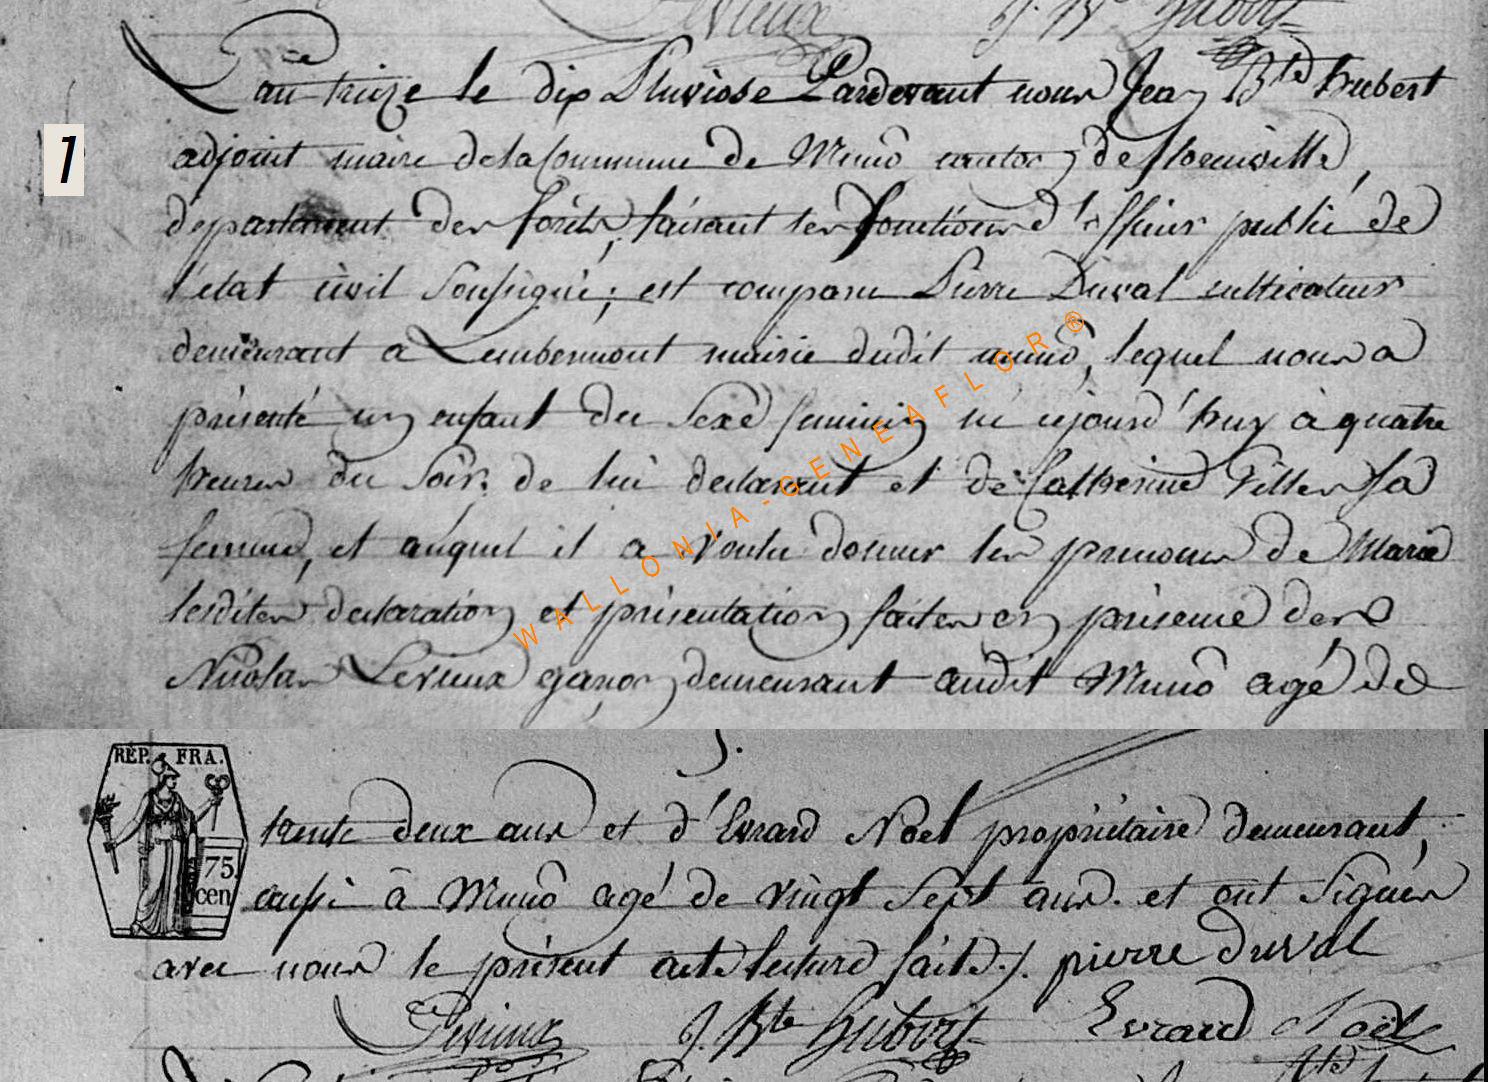 Levieux J. Bte Hubert
L'an treize le dix Pluviose Pardevant nous Jean Bte hubert
1
adjoint maire de la Commune de Munô canton de florenville,
département des forêts, faisant les fonctions d'officier public de
l'état civil soussigné; est comparu Pierre Duval cultivateur
demeurant a Lambermont mairie dudit munô, lequel nous a
présenté un enfant du sexe feminin né cejourd'huy à quatre
heures du soir de lui déclarant et de Catherine Filles sa
femme, et auquel il a voulu donner les prenoms de Marie
lesdites declaration et présentation faites en présence des
Nicolas Levieux garçon demeurant audit Munô agé de
WALLONIA-GENEAFLOR®
REP. FRA.
75 cen
trente deux ans et d'Evrard Noel propriétaire demeurant,
aussi à Munô agé de vingt sept ans. et ont signés
avec nous le présent acte lecture faite./. pierre duval
Levieux J. Bte Hubert Evrard Noël